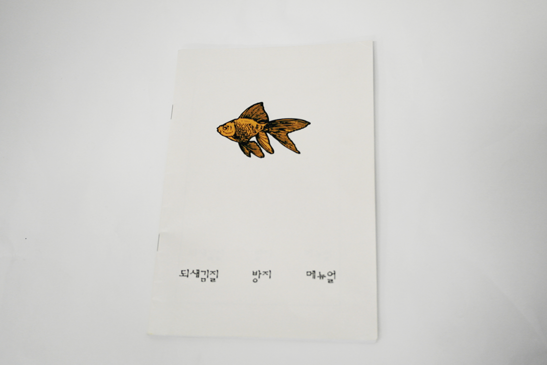 되새김질 방지 메뉴얼